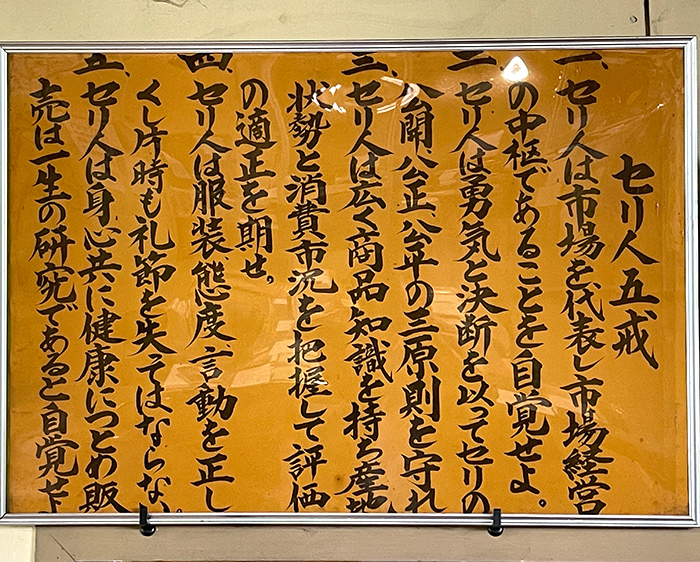 セリ人五戒
一、セリ人は市場を代表し市場経営
の中枢であることを自覚せよ。
二、セリ人は勇気と決断を以ってセリの
公開公正公平の三原則を守れ
三、セリ人は広く商品知識を持ち産地
状勢と消費市況を把握して評価
の適正を期せ。
四、セリ人は服装態度言動を正し
くし片時も礼節を失ってはならない。
五、セリ人は身心共に健康につとめ販
売は一生の研究であると自覚せよ